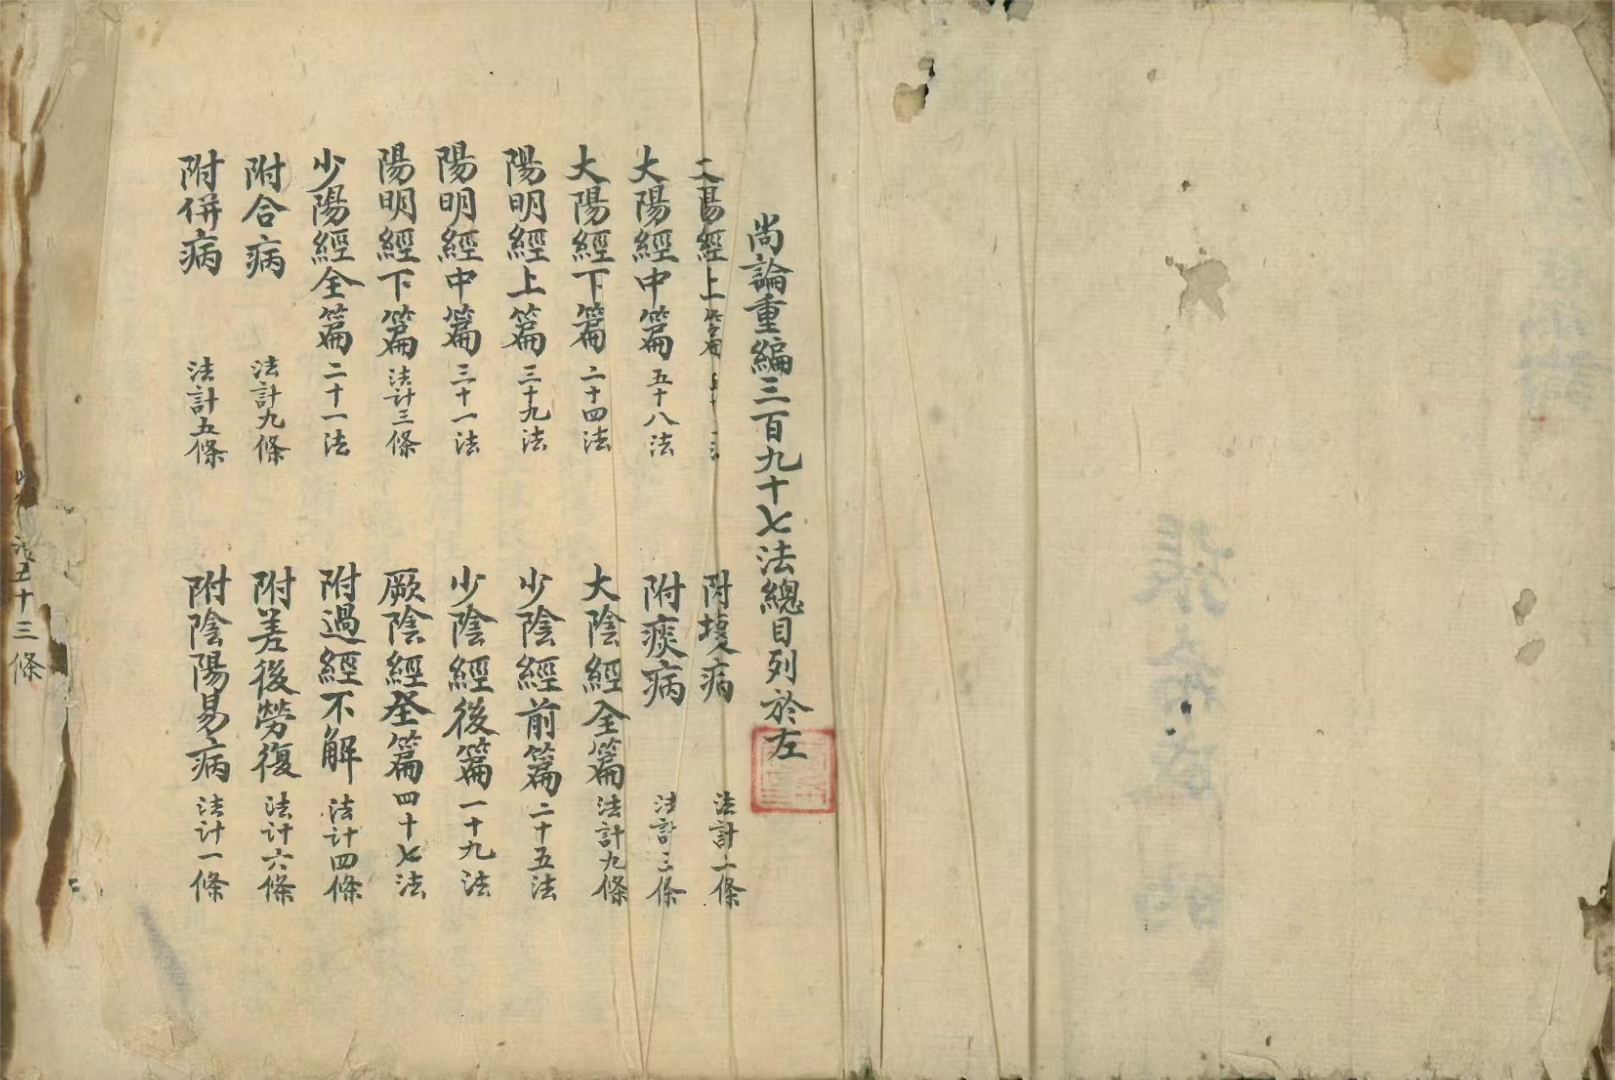 尚論重編三百九十七法總目列於左
大陽經上篇
附壞病 法計二條
大陽經中篇 五十八法
附痰病 法計三條
大陽經下篇 二十四法
大陰經全篇 法計九條
陽明經上篇 三十九法
少陰經前篇 二十五法
陽明經中篇 三十一法
少陰經後篇 一十九法
陽明經下篇 法計三條
厥陰經全篇 四十七法
少陽經全篇 二十一法
附過經不解 法計四條
附合病 法計九條
附差後勞復 法計六條
附併病 法計五條
附陰陽易病 法計一條
五十三條